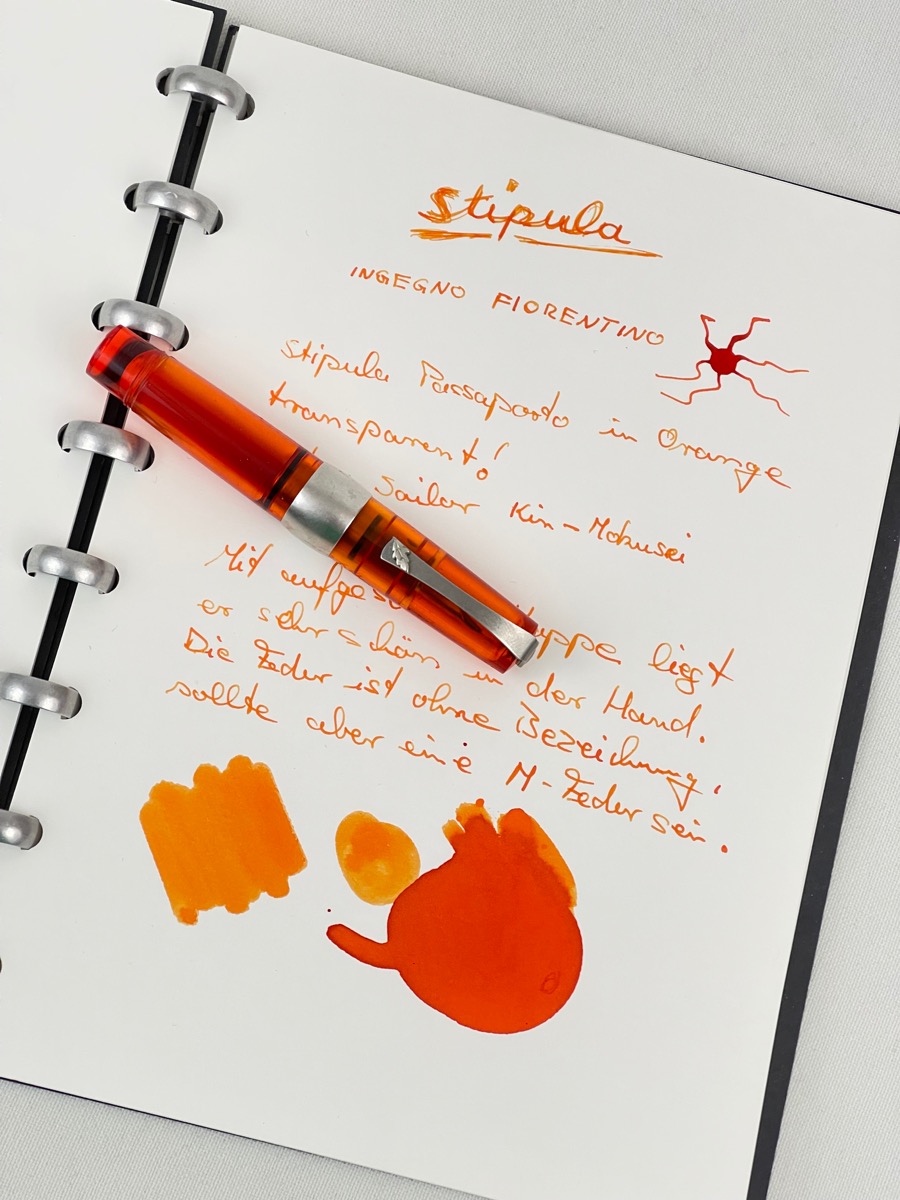 Stipula
INGEGNO FIORENTINO
Stipula Passaporto in Orange
transparent!
Sailor Kin-Mokusei
Mit liegt
er sehr schön in der Hand.
Die Feder ist ohne Bezeichnung,
sollte aber eine M-Feder sein.